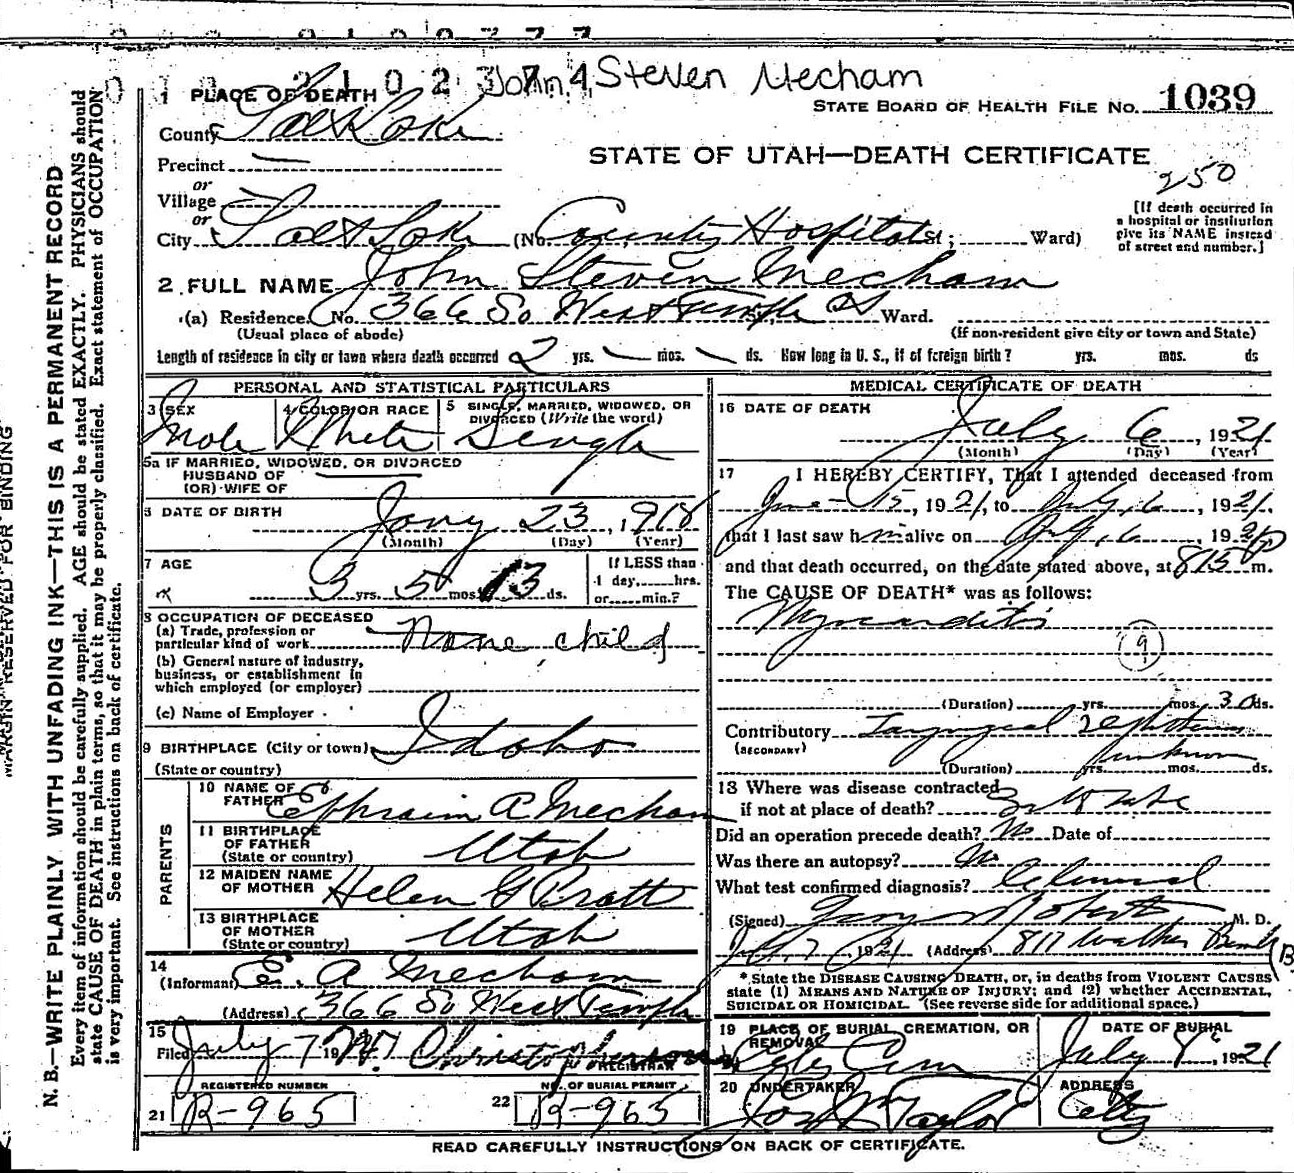 John Steven Mecham
STATE BOARD OF HEALTH FILE NO. 1039
1 PLACE OF DEATH
County Salt Lake
STATE OF UTAH—DEATH CERTIFICATE
Precinct
250
or
Village
or
[If death occurred in a hospital or institution give its NAME instead of street and number.]
City Salt Lake (No. County Hospital St; Ward)
2 FULL NAME John Steven Mecham
(a) Residence. No. 366 So West Temple St Ward.
(Usual place of abode) (If non-resident give city or town and State)
Length of residence in city or town where death occurred 2 yrs. mos. ds. How long in U. S., if of foreign birth? yrs. mos. ds
PERSONAL AND STATISTICAL PARTICULARS
3 SEX 4 COLOR OR RACE 5 SINGLE, MARRIED, WIDOWED, OR DIVORCED (Write the word)
Male White Single
5a IF MARRIED, WIDOWED, OR DIVORCED
HUSBAND OF
(OR) WIFE OF
6 DATE OF BIRTH Jany 23, 1918
(Month) (Day) (Year)
7 AGE If LESS than
1 day,......hrs.
3 yrs. 5 mos. 13 ds. or......min.?
8 OCCUPATION OF DECEASED
(a) Trade, profession or
particular kind of work None, child
(b) General nature of industry,
business, or establishment in
which employed (or employer)
(c) Name of Employer
9 BIRTHPLACE (City or town) Idaho
(State or country)
PARENTS
10 NAME OF FATHER Ephraim A Mecham
11 BIRTHPLACE OF FATHER Utah
(State or country)
12 MAIDEN NAME OF MOTHER Helen G Pratt
13 BIRTHPLACE OF MOTHER Utah
(State or country)
14
(Informant) E. A Mecham
(Address) 366 So West Temple
15
Filed July 7 19 W. Christopherson
REGISTRAR
REGISTERED NUMBER NO. OF BURIAL PERMIT
21 R-965 22 R-965
MEDICAL CERTIFICATE OF DEATH
16 DATE OF DEATH
July 6, 1921
(Month) (Day) (Year)
17 I HEREBY CERTIFY, That I attended deceased from
June 15, 1921, to July 6, 1921.
that I last saw h im alive on July 6, 1921
and that death occurred, on the date stated above, at 815 p m.
The CAUSE OF DEATH* was as follows:
Myocarditis
9
(Duration) yrs. mos. 30 ds.
Contributory Laryngeal
(SECONDARY) unknown
(Duration) yrs. mos. ds.
18 Where was disease contracted
if not at place of death?
Did an operation precede death? No Date of
Was there an autopsy? No
What test confirmed diagnosis? Clinical
(Signed) Roberts, M. D.
July 7 1921 (Address) 817 Walker Bank
(B
* State the DISEASE CAUSING DEATH, or, in deaths from VIOLENT CAUSES
state (1) MEANS AND NATURE OF INJURY; and (2) whether ACCIDENTAL,
SUICIDAL OR HOMICIDAL. (See reverse side for additional space.)
19 PLACE OF BURIAL, CREMATION, OR REMOVAL DATE OF BURIAL
City Cem July 8, 1921
20 UNDERTAKER ADDRESS
Jos Wm Taylor City
READ CAREFULLY INSTRUCTIONS ON BACK OF CERTIFICATE.
MARGIN RESERVED FOR BINDING
N. B.—WRITE PLAINLY WITH UNFADING INK—THIS IS A PERMANENT RECORD
Every item of information should be carefully supplied. AGE should be stated EXACTLY. PHYSICIANS should
state CAUSE OF DEATH in plain terms, so that it may be properly classified. Exact statement of OCCUPATION
is very important. See instructions on back of certificate.